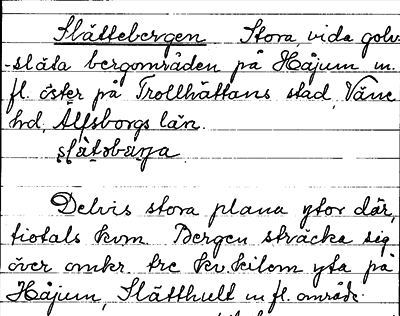 Slättebergen Stora, vida golv
-släta bergområden på Håjum m.
fl. öster på Trollhättans stad, Väne
hd, Älfsborgs län.
Delvis stora plana ytor där,
tiotals kvm. Bergen sträcka sig
över omkr. tre kv.kilom yta på
Håjum, Slätthult m fl. områd.